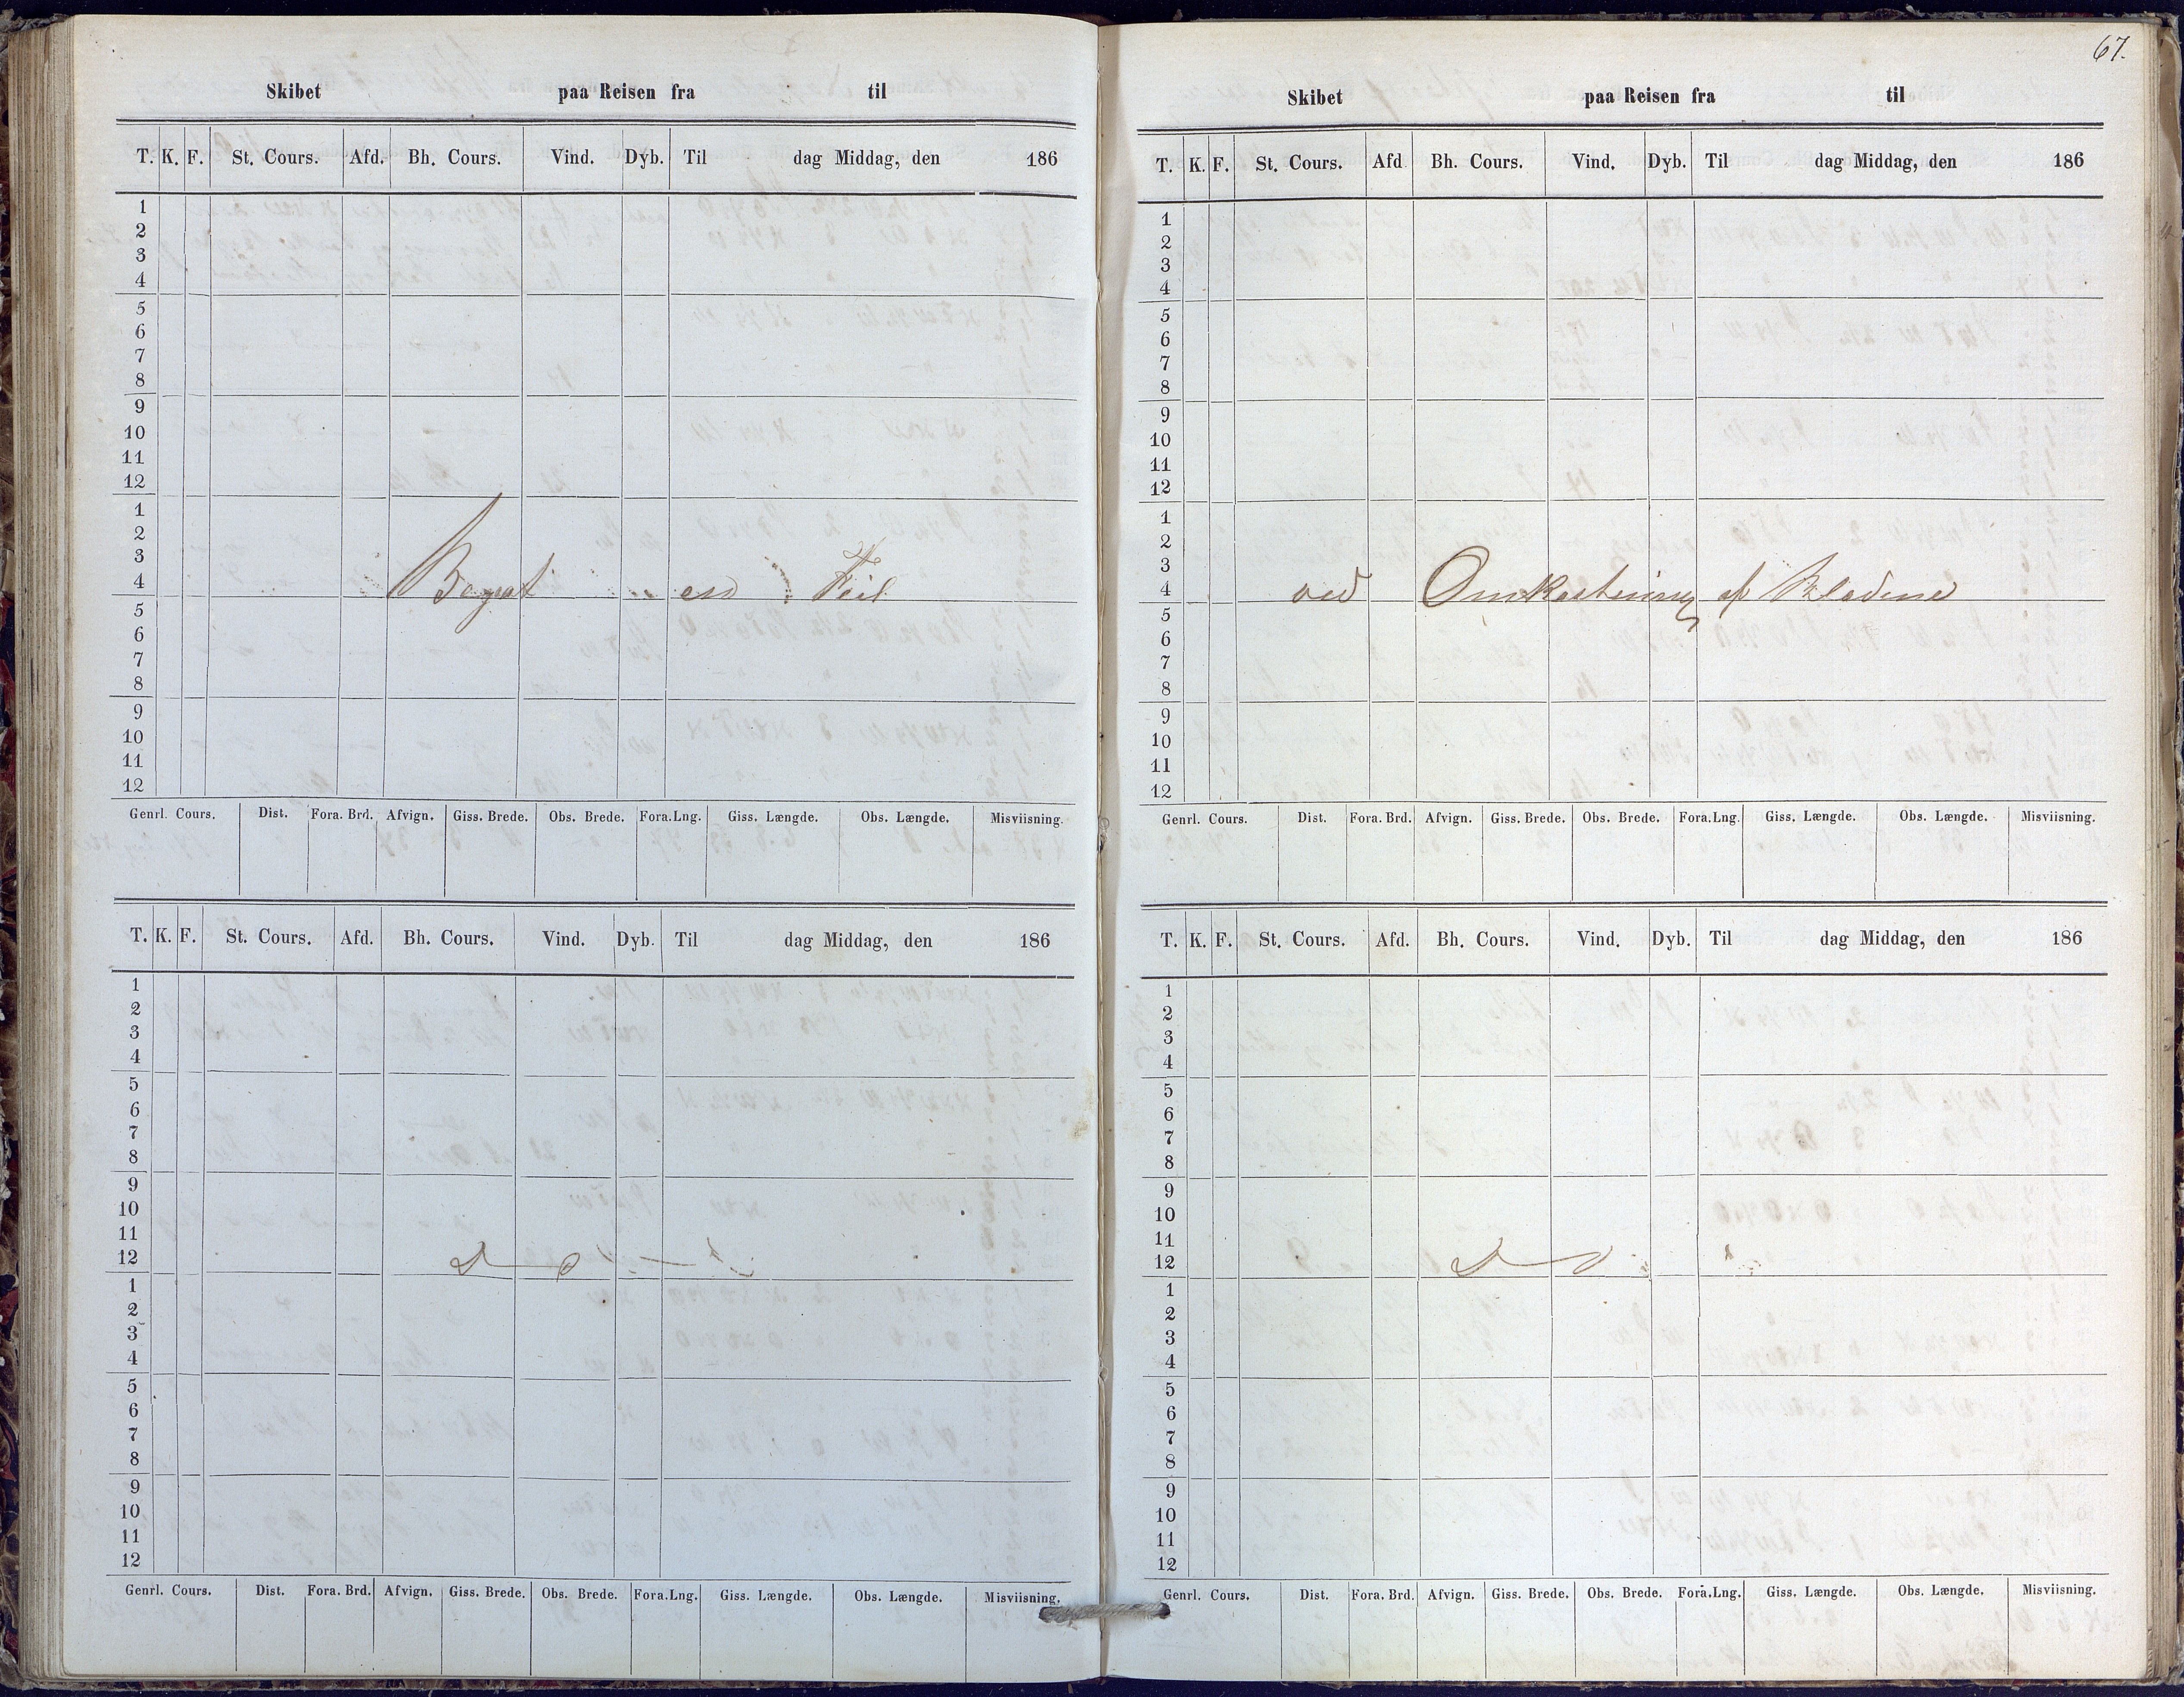 Skibet paa Reisen fra til
T. K. F. St. Cours. Afd. Bh. Cours. Vind. Dyb. Til dag Middag, den 186
1
2
3
4
5
6
7
8
9
10
11
12
1
2
3
4 Begaat en Feil
5
6
7
8
9
10
11
12
Genrl. Cours. Dist. Fora. Brd. Afvign. Giss. Brede. Obs. Brede. Fora.Lng. Giss. Længde. Obs. Længde. Misviisning.
T. K. F. St. Cours. Afd. Bh. Cours. Vind. Dyb. Til dag Middag, den 186
1
2
3
4
5
6
7
8
9
10
11
12 D o
1
2
3
4
5
6
7
8
9
10
11
12
Genrl. Cours. Dist. Fora. Brd. Afvign. Giss. Brede. Obs. Brede. Fora.Lng. Giss. Længde. Obs. Længde. Misviisning.
67.
Skibet paa Reisen fra til
T. K. F. St. Cours. Afd Bh. Cours. Vind. Dyb. Til dag Middag, den 186
1
2
3
4
5
6
7
8
9
10
11
12
1
2
3
4 ved Omkastning af Bladene
5
6
7
8
9
10
11
12
Genrl. Cours. Dist. Fora. Brd. Afvign. Giss. Brede. Obs. Brede. Fora.Lng. Giss. Længde. Obs. Længde. Misviisning.
T. K. F. St. Cours. Afd. Bh. Cours. Vind. Dyb. Til dag Middag, den 186
1
2
3
4
5
6
7
8
9
10
11
12 D o
1
2
3
4
5
6
7
8
9
10
11
12
Genrl. Cours. Dist. Fora. Brd. Afvign. Giss. Brede. Obs. Brede. Fora.Lng. Giss. Længde. Obs. Længde. Misviisning.